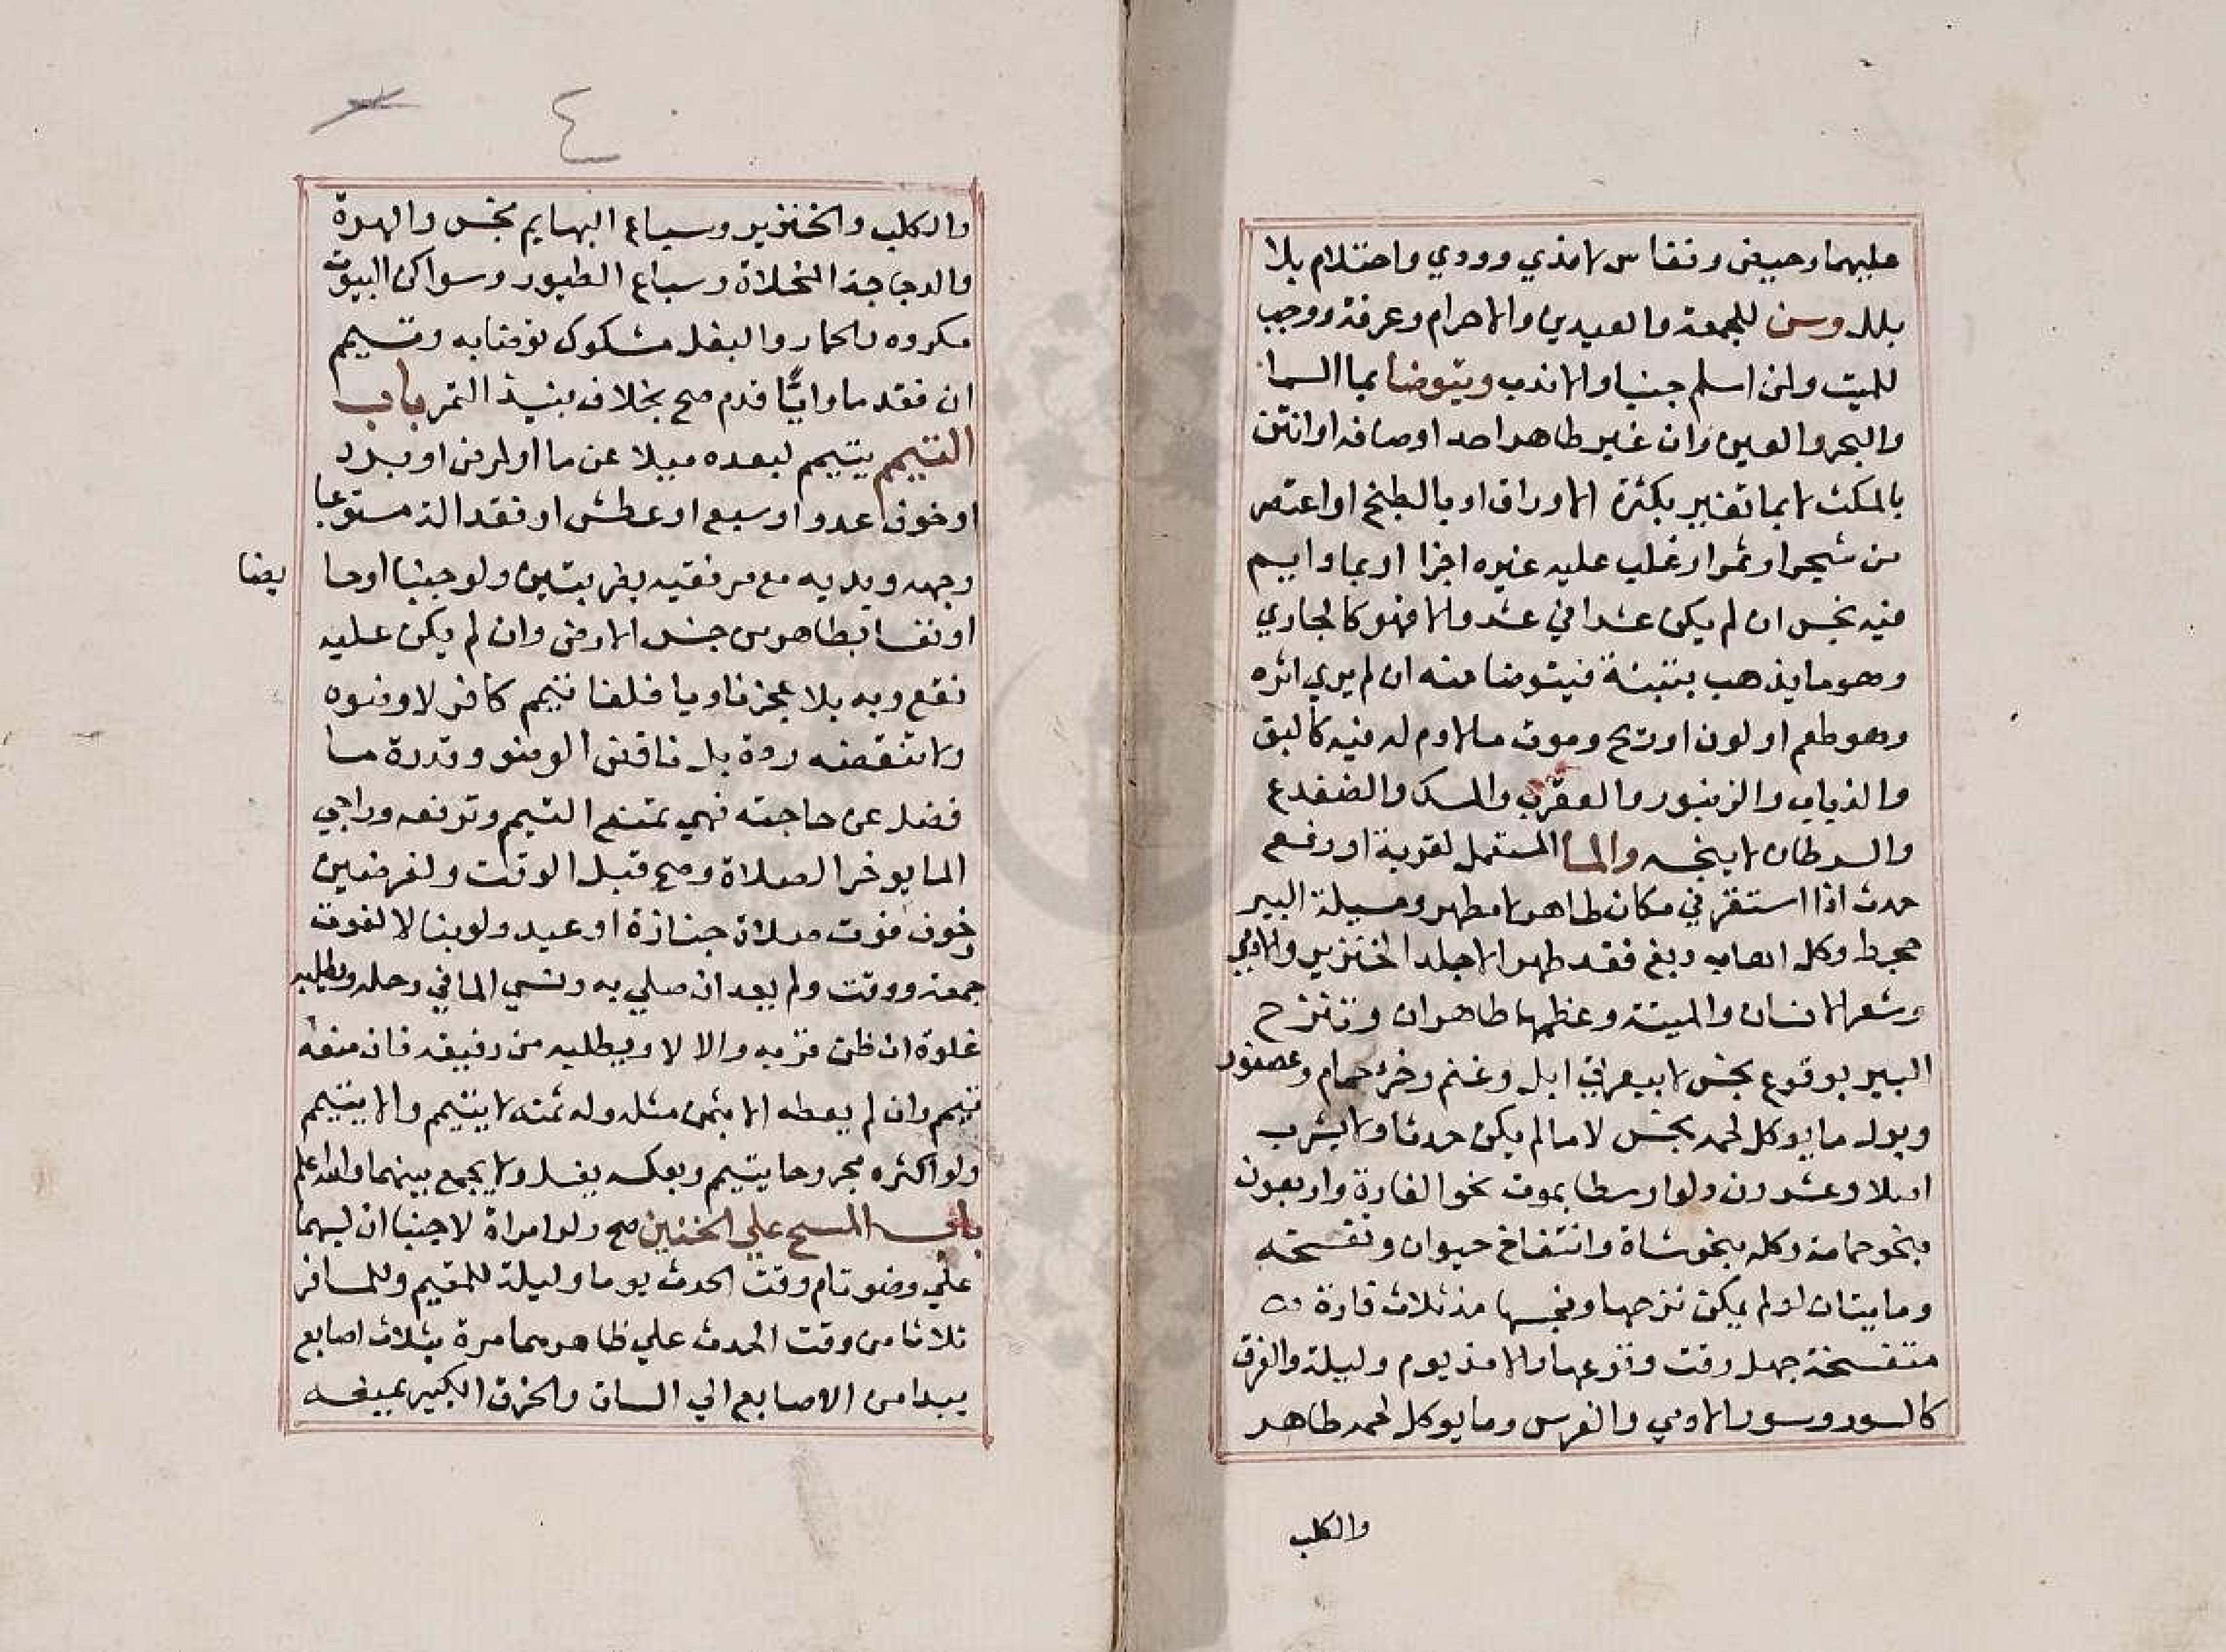 عليهما وحيض ونفاس لا مذي وودي واحتلام بلا
بلل وسن للجمعة والعيدين والاحرام وعرفة ووجب
للميت ولمن اسلم جنبا والا ندب ويتوضا بما السما
والبحر والعين وان غير طاهر احد اوصافه او انتن
بالمكث لا بما تغير بكثرة الاوراق او بالطبخ او اعتصر
من شجر او ثمر او غلب عليه غيره اجزا او بما دايم
فيه نجس ان لم يكن عشرا في عشر والا فهو كالجاري
وهو ما يذهب بتبنة فيتوضا منه ان لم يري اثره
وهو طعم او لون او ريح وموت ما لا دم له فيه كالبق
والذباب والزنبور والعقرب والسمك والضفدع
والسرطان لا ينجسه والما المستعمل لقربة او رفع
حدث اذا استقر في مكان طاهر لا مطهر ومسيلة البير
جحط وكل اهاب دبغ فقد طهر الا جلد الخنزير والادمي
وشعر الانسان والميتة وعظمهما طاهران وتنزح
البير بوقوع نجس لا ببعرتي ابل وغنم وخرء حمام وعصفور
وبول ما يوكل لحمه نجس لا ما لم يكن حدثا ولا يشرب
اصلا وعشرون دلوا وسطا بموت نحو الفارة واربعون
بنحو حمامة وكله بنحو شاة وانتفاخ حيوان وتفسخه
ومايتان لو لم يمكن نزحها ونجسها مذ ثلاث فارة
متفسخة جهل وقت وقوعها والا مذ يوم وليلة والعرق
كالسور وسور الادمي والفرس وما يوكل لحمه طاهر
والكلب
٤
والكلب والخنزير وسباع البهايم نجس والهرة
والدجاجة المخلاة وسباع الطيور وسواكن البيوت
مكروه والحمار والبغل مشكوك توضا به وتيمم
ان فقد ما وايا قدم صح بخلاف نبيذ التمر باب
التيمم يتيمم لبعده ميلا عن ما او لمرض او برد
او خوف عدو او سبع او عطش او فقد الة مستوعبا
وجهه ويديه مع مرفقيه بضربتين ولو جنبا او حا
يضا
او نفسا بطاهر من جنس الارض وان لم يكن عليه
نقع وبه بلا عجز ناويا فلغا تيمم كافر لا وضوه
ولا تنقضه ردة بل ناقض الوضو وقدرة ما
فضل عن حاجته فهي تمنع التيمم وترفعه وراجي
الما يوخر الصلاة وصح قبل الوقت ولفرضين
وخوف فوت صلاة جنازة او عيد ولو بنا لا لفوت
جمعة ووقت ولم يعد ان صلي به ونسي الما في رحله ويطلبه
غلوة ان ظن قربه والا لا ويطلبه من رفيقه فان منعه
تيمم وان لم يعطه الا بثمن مثله وله ثمنه لا يتيمم والا يتيمم
ولو اكثره مجروحا يتيمم وبعكسه يغسل ولا يجمع بينهما والله اعلم
باب المسح علي الخفين صح ولو امراة لا جنبا ان لبسهما
علي وضو تام وقت الحدث يوما وليلة للمقيم وللمسافر
ثلاثا من وقت الحدث علي ظاهرهما مرة بثلاث اصابع
يبدا من الاصابع الي الساق والخرق الكبير يمنعه